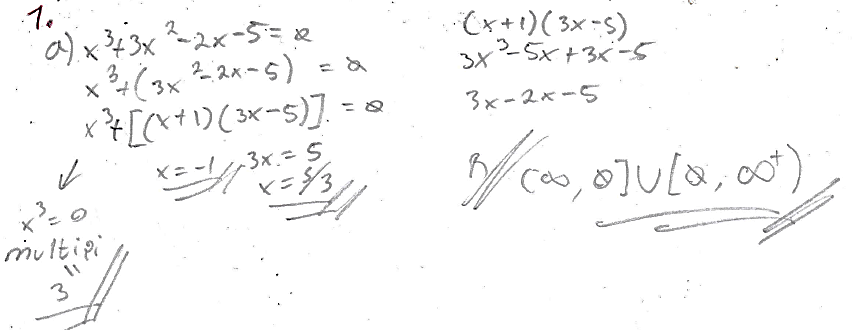 1.
a) x³+3x²-2x-5=0
x³+(3x²-2x-5) = 0
x³+[(x+1)(3x-5)] = 0
x=-1 3x=5
x=5/3
x³=0
multipi
"
3
(x+1)(3x-5)
3x³-5x+3x-5
3x-2x-5
R// (∞, 0]∪[0, ∞⁺)